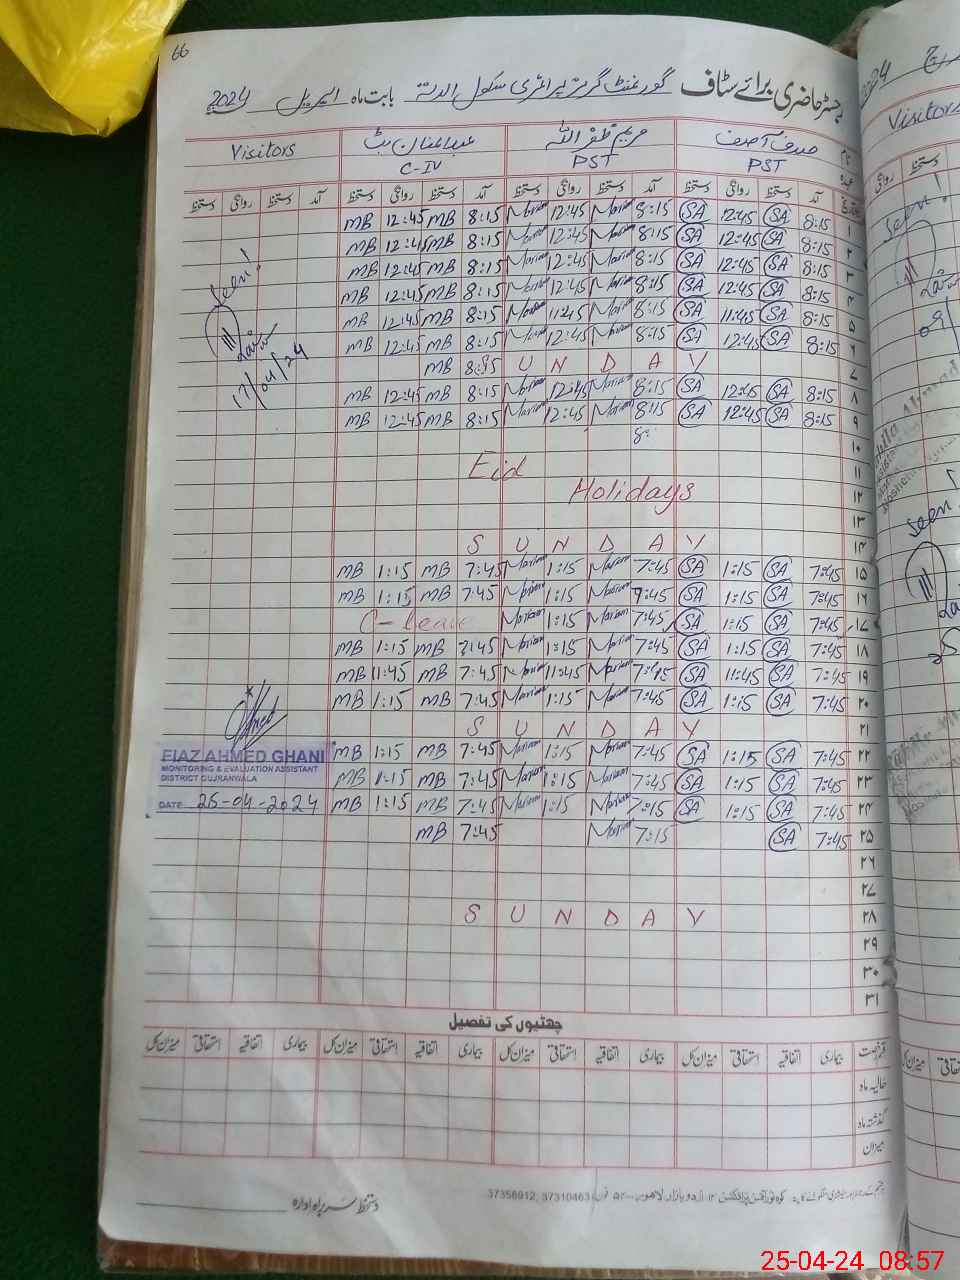 66
رجسٹر حاضری برائے سٹاف گورنمنٹ گرلز پرائمری سکول بابت ماہ اپریل 2024
نام صدف آصف مریم ظفر اللہ عبدالمنان بٹ Visitors
عہدہ PST PST C-IV
آمد دستخط روانگی دستخط آمد دستخط روانگی دستخط آمد دستخط روانگی دستخط آمد دستخط روانگی دستخط
۱ 8:15 SA 12:45 SA 8:15 Mariam 12:45 Mariam 8:15 MB 12:45 MB
۲ 8:15 SA 12:45 SA 8:15 Mariam 12:45 Mariam 8:15 MB 12:45 MB
۳ 8:15 SA 12:45 SA 8:15 Mariam 12:45 Mariam 8:15 MB 12:45 MB
۴ 8:15 SA 12:45 SA 8:15 Mariam 12:45 Mariam 8:15 MB 12:45 MB
۵ 8:15 SA 11:45 SA 8:15 Mariam 11:45 Mariam 8:15 MB 12:45 MB
۶ 8:15 SA 12:45 SA 8:15 Mariam 12:45 Mariam 8:15 MB 12:45 MB
۷ U N D A Y 8:15 MB
۸ 8:15 SA 12:45 SA 8:15 Mariam 12:45 Mariam 8:15 MB 12:45 MB
۹ 8:15 SA 12:45 SA 8:15 Mariam 12:45 Mariam 8:15 MB 12:45 MB
۱۰ 8:
۱۱ Eid
۱۲ Holidays
۱۳
۱۴ S U N D A Y
۱۵ 7:45 SA 1:15 SA 7:45 Mariam 1:15 Mariam 7:45 MB 1:15 MB
۱۶ 7:45 SA 1:15 SA 7:45 Mariam 1:15 Mariam 7:45 MB 1:15 MB
۱۷ 7:45 SA 1:15 SA 7:45 Mariam 1:15 Mariam C-Leave
۱۸ 7:45 SA 1:15 SA 7:45 Mariam 1:15 Mariam 7:45 MB 1:15 MB
۱۹ 7:45 SA 11:45 SA 7:45 Mariam 11:45 Mariam 7:45 MB 11:45 MB
۲۰ 7:45 SA 1:15 SA 7:45 Mariam 1:15 Mariam 7:45 MB 1:15 MB
۲۱ S U N D A Y
۲۲ 7:45 SA 1:15 SA 7:45 Mariam 1:15 Mariam 7:45 MB 1:15 MB
۲۳ 7:45 SA 1:15 SA 7:45 Mariam 1:15 Mariam 7:45 MB 1:15 MB
۲۴ 7:45 SA 1:15 SA 7:15 Mariam 1:15 Mariam 7:45 MB 1:15 MB
۲۵ 7:45 SA 7:15 Mariam 7:45 MB
۲۶
۲۷
۲۸ S U N D A Y
۲۹
۳۰
۳۱
Seen!
17/04/24
FIAZ AHMED GHANI
MONITORING & EVALUATION ASSISTANT
DISTRICT GUJRANWALA
DATE 25-04-2024
چھٹیوں کی تفصیل
قسم رخصت بیماری اتفاقیہ استحقاقی میزان کل بیماری اتفاقیہ استحقاقی میزان کل بیماری اتفاقیہ استحقاقی میزان کل بیماری اتفاقیہ استحقاقی میزان کل
حالیہ ماہ
گذشتہ ماہ
میزان
اردو بازار لاہور فون 37310463, 37356912
دستخط سربراہ ادارہ
2024
Visitors
دستخط روانگی
Seen!
09/
Seen!
25-04-24 08:57